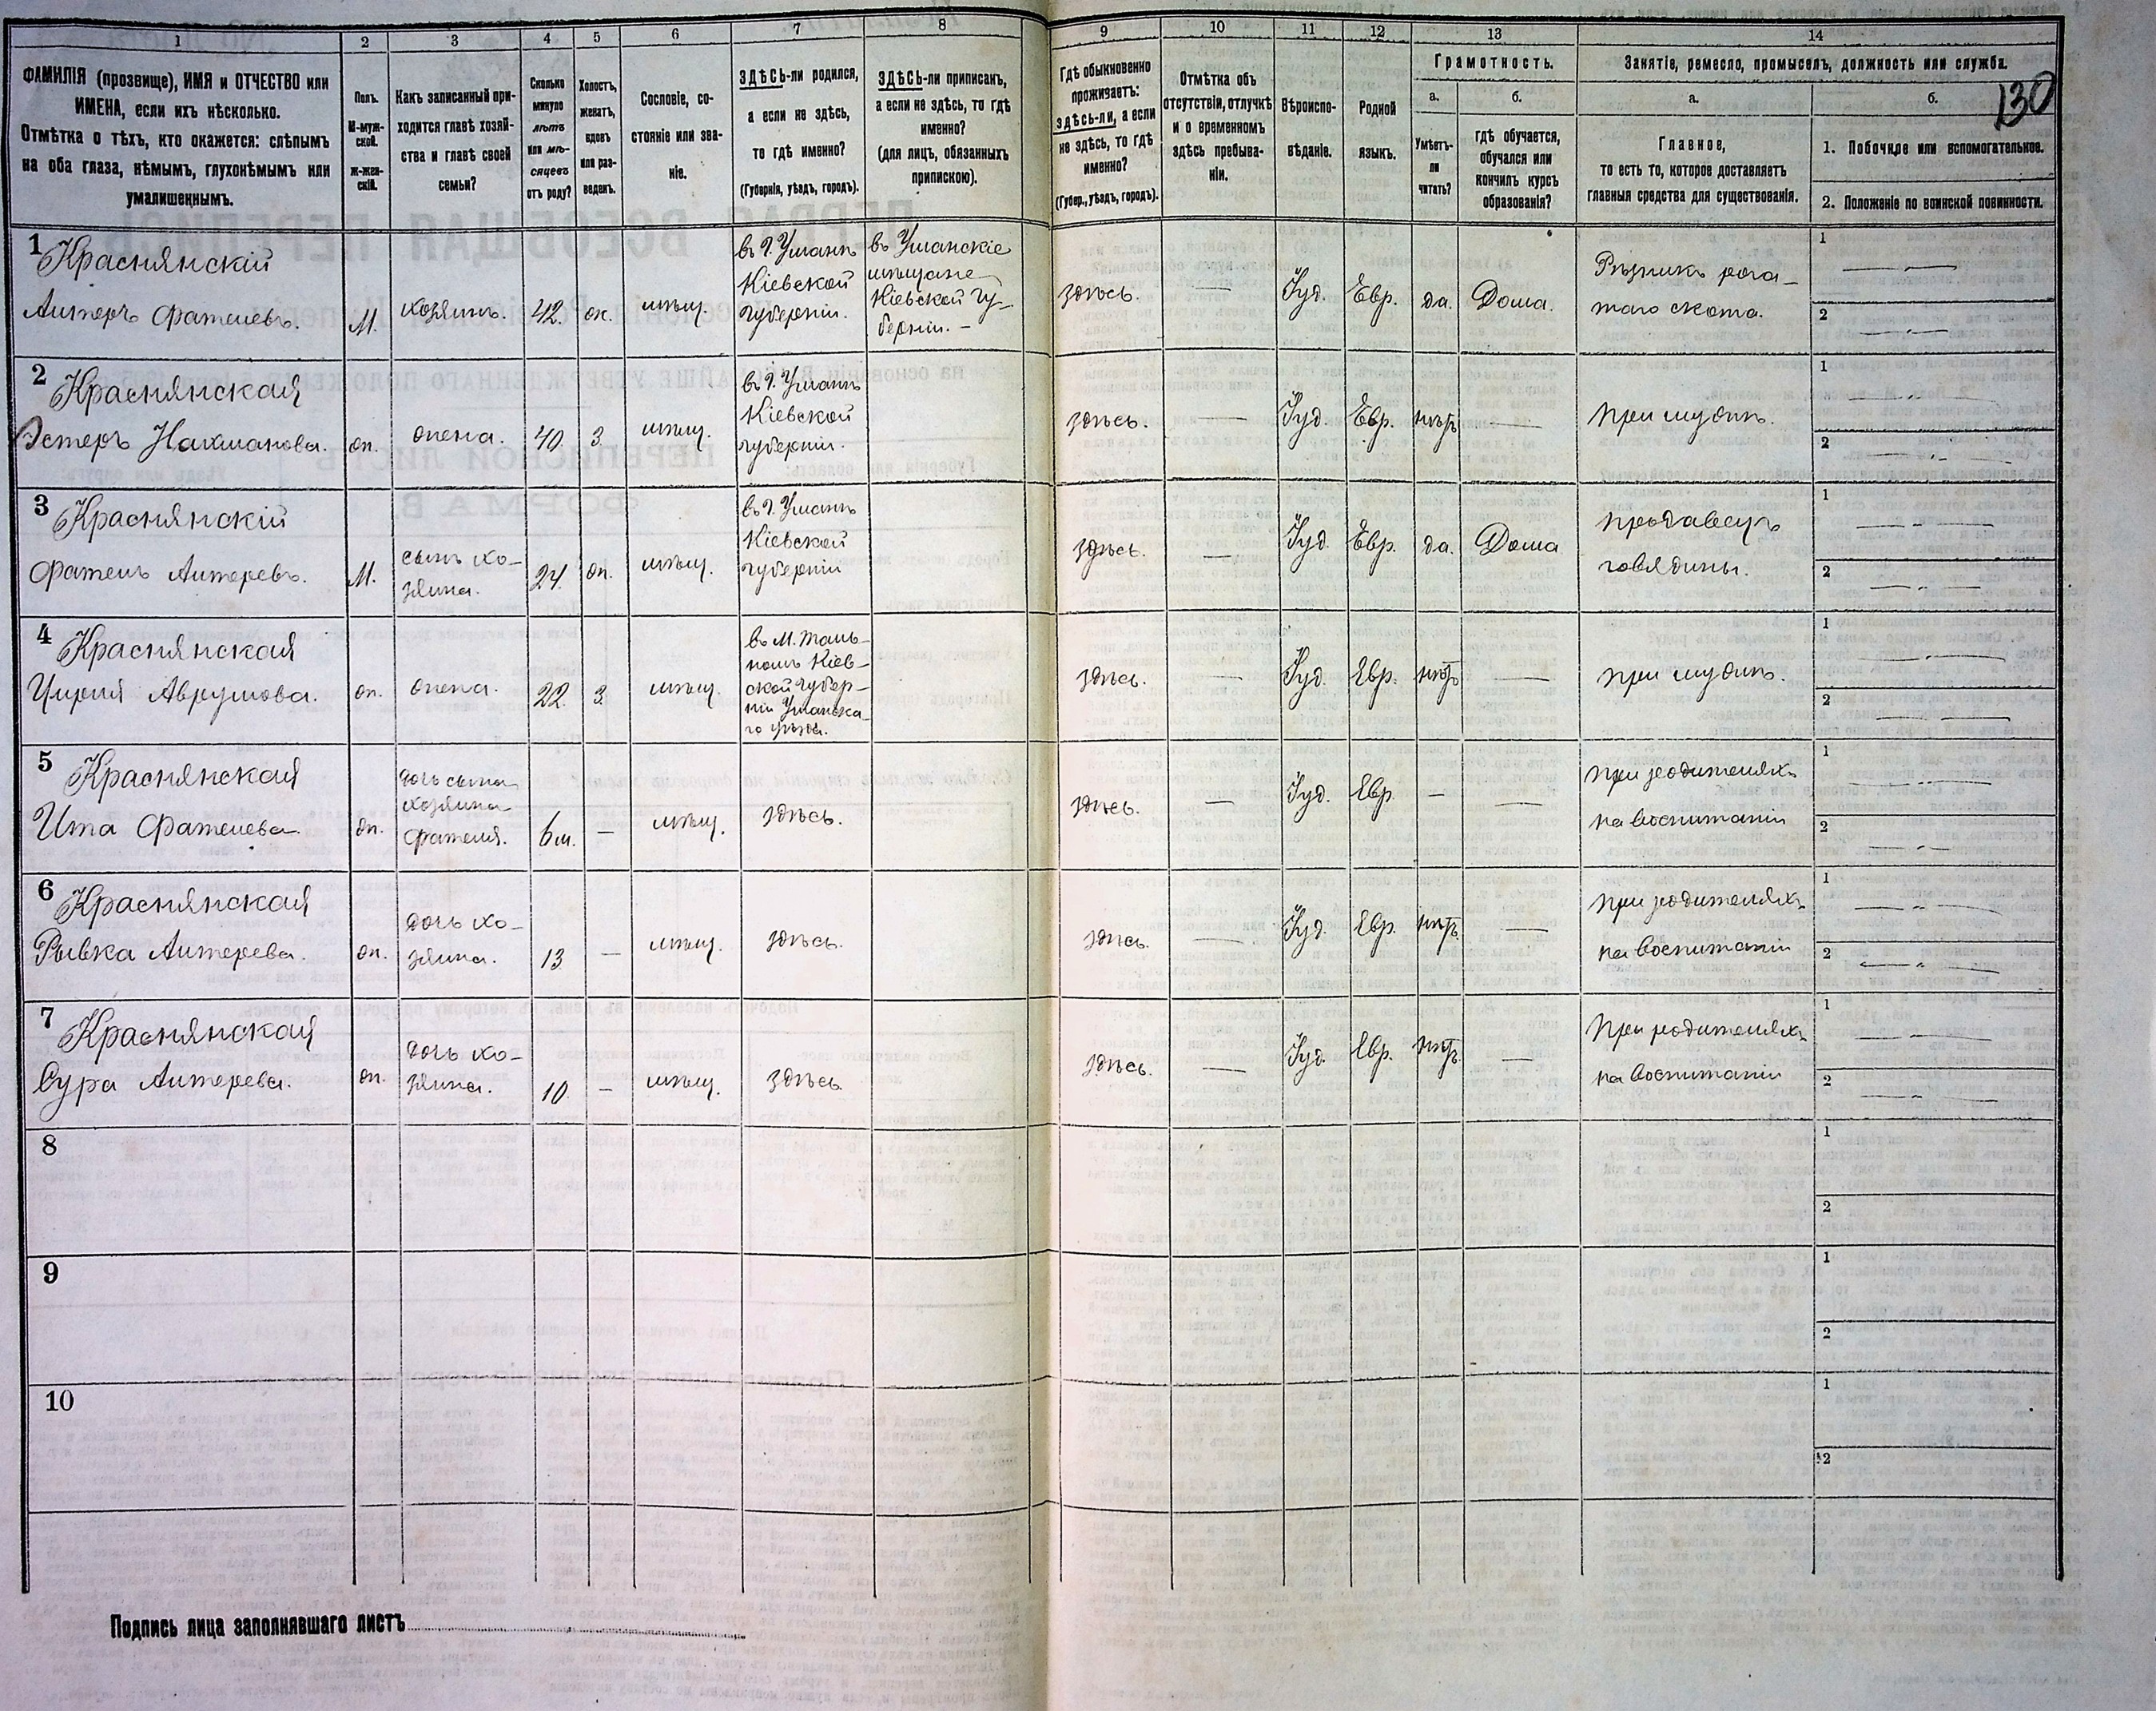 130
1 2 3 4 5 6 7 8 9 10 11 12 13 14
ФАМИЛІЯ (прозвище), ИМЯ и ОТЧЕСТВО или
ИМЕНА, если ихъ нѣсколько.
Отмѣтка о тѣхъ, кто окажется: слѣпымъ
на оба глаза, нѣмымъ, глухонѣмымъ или
умалишеннымъ.
Полъ.
М-муж-
ской.
ж-жен-
скій.
Какъ записанный при-
ходится главѣ хозяй-
ства и главѣ своей
семьи?
Сколько
минуло
лѣтъ
или мѣ-
сяцевъ
отъ роду?
Холостъ,
женатъ,
вдовъ
или раз-
веденъ.
Сословіе, со-
стояніе или зва-
ніе.
ЗДѢСЬ-ли родился,
а если не здѣсь,
то гдѣ именно?
(Губернія, уѣздъ, городъ).
ЗДѢСЬ-ли приписанъ,
а если не здѣсь, то гдѣ
именно?
(для лицъ, обязанныхъ
припискою).
Гдѣ обыкновенно
проживаетъ:
здѣсь-ли, а если
не здѣсь, то гдѣ
именно?
(Губер., уѣздъ, городъ).
Отмѣтка объ
отсутствіи, отлучкѣ
и о временномъ
здѣсь пребыва-
ніи.
Вѣроиспо-
вѣданіе.
Родной
языкъ.
Грамотность.
а.
Умѣетъ-
ли
читать?
б.
гдѣ обучается,
обучался или
кончилъ курсъ
образованія?
Занятіе, ремесло, промыселъ, должность или служба.
а.
Главное,
то есть то, которое доставляетъ
главныя средства для существованія.
б.
1. Побочное или вспомогательное.
2. Положеніе по воинской повинности.
1
Краснянскій
Антеръ Фателевъ.
М.
хозяинъ.
42.
ж.
мѣщ.
въ г. Умани
Кіевской
губерніи.
въ Уманскіе
мѣщане
Кіевской гу-
берніи. –
здѣсь.
—
Іуд.
Евр.
да.
Дома.
Рѣзникъ рога-
таго скота.
1 — „ —
2 — „ —
2
Краснянская
Эстеръ Нахманова.
ж.
жена.
40.
з.
мѣщ.
въ г. Умани
Кіевской
губерніи.
здѣсь.
—
Іуд.
Евр.
нѣтъ
—
при мужѣ.
1 — „ —
2 — „ —
3
Краснянскій
Фатель Антеревъ.
М.
сынъ хо-
зяина.
24.
ж.
мѣщ.
въ г. Умани
Кіевской
губерніи
здѣсь.
—
Іуд.
Евр.
да.
Дома
продавецъ
говядины.
1 — „ —
2 — „ —
4
Краснянская
Циря Аврумова.
ж.
жена.
22.
з.
мѣщ.
въ М. Таль-
номъ Кіев-
ской губер-
ніи Уманска-
го уѣзда.
здѣсь.
—
Іуд.
Евр.
нѣтъ
—
при мужѣ.
1 — „ —
2 — „ —
5
Краснянская
Ита Фателева
ж.
дочь сына
хозяина
Фателя.
6 м.
—
мѣщ.
здѣсь.
здѣсь.
—
Іуд.
Евр.
—
—
при родителяхъ
на воспитаніи
1 — „ —
2 — „ —
6
Краснянская
Рывка Антерева.
ж.
дочь хо-
зяина.
13
—
мѣщ.
здѣсь.
здѣсь.
—
Іуд.
Евр.
нѣтъ.
—
при родителяхъ
на воспитаніи
1 — „ —
2 — „ —
7
Краснянская
Сура Антерева.
ж.
дочь хо-
зяина.
10.
–
мѣщ.
здѣсь.
здѣсь.
—
Іуд.
Евр.
нѣтъ.
—
При родителяхъ
на воспитаніи
1 — „ —
2 — „ —
8
1
2
9
1
2
10
1
2
Подпись лица заполнявшаго листъ